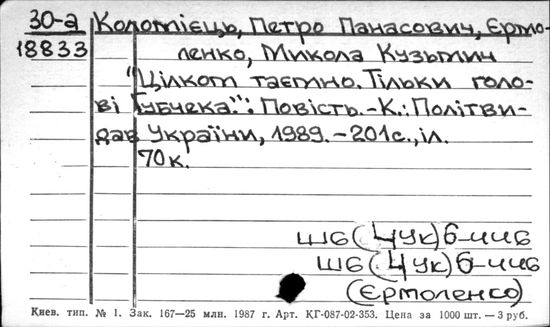 30-а Коломієць, Петро Панасович, Єрмо-
18833 ленко, Микола Кузьмич
"Цілком таємно. Тільки голо-
ві Губчека.": Повість.-К.: Політви-
дав України, 1989.-201с., іл.
70к.
Ш6(4Ук)6-4Ч6
Ш6(4Ук)6-4Ч6
(Єрмоленко)
Киев. тип. № 1. Зак. 167—25 млн. 1987 г. Арт. КГ-087-02-353. Цена за 1000 шт. — 3 руб.